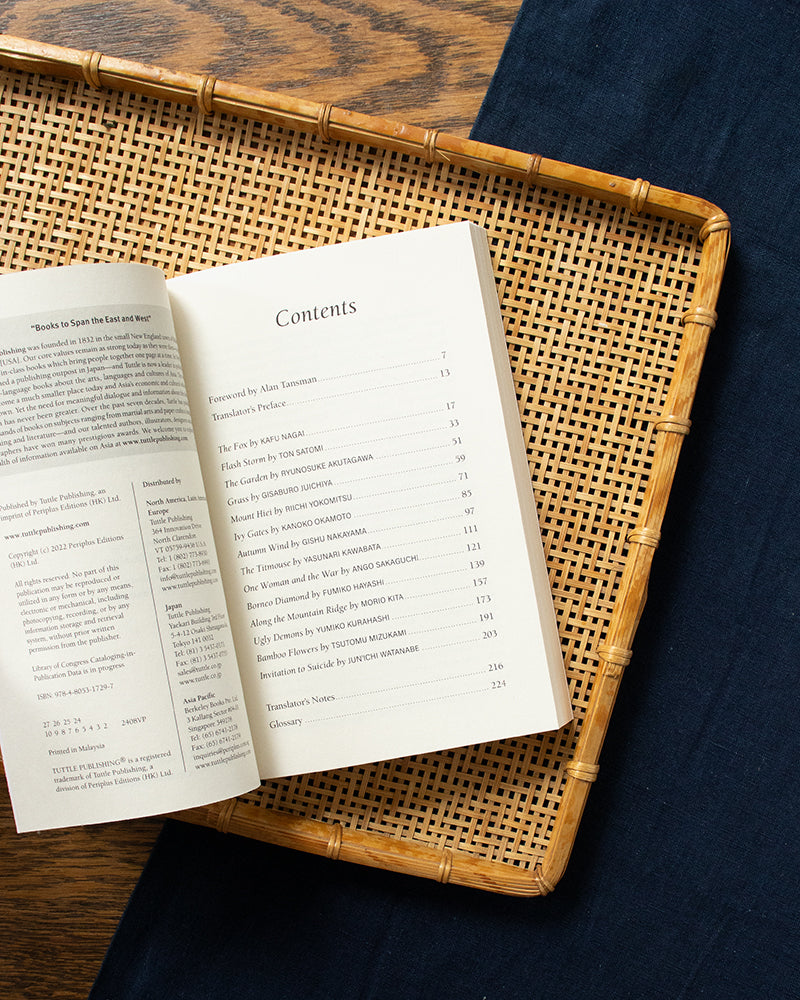 "Books to Span the East and West"
blishing was founded in 1832 in the small New England
[USA]. Our core values remain as strong today as they were
in-class books which bring people together one page at a time. In
ed a publishing outpost in Japan—and Tuttle is now a leader in
-language books about the arts, languages and cultures of Asia. The
come a much smaller place today and Asia's economic and cultural
own. Yet the need for meaningful dialogue and information about
has never been greater. Over the past seven decades, Tuttle has
ands of books on subjects ranging from martial arts and paper crafts
ning and literature—and our talented authors, illustrators, designers
raphers have won many prestigious awards. We welcome you to
lth of information available on Asia at www.tuttlepublishing.com.
Published by Tuttle Publishing, an
imprint of Periplus Editions (HK) Ltd.
www.tuttlepublishing.com
Copyright (c) 2022 Periplus Editions
(HK) Ltd.
All rights reserved. No part of this
publication may be reproduced or
utilized in any form or by any means,
electronic or mechanical, including
photocopying, recording, or by any
information storage and retrieval
system, without prior written
permission from the publisher.
Library of Congress Cataloging-in-
Publication Data is in progress
ISBN: 978-4-8053-1729-7
27 26 25 24
10 9 8 7 6 5 4 3 2 2408VP
Printed in Malaysia
TUTTLE PUBLISHING® is a registered
trademark of Tuttle Publishing, a
division of Periplus Editions (HK) Ltd.
Distributed by
North America, Latin America
Europe
Tuttle Publishing
364 Innovation Drive
North Clarendon
VT 05759-9436 U.S.A
Tel: 1 (802) 773-8930
Fax: 1 (802) 773-6993
info@tuttlepublishing
www.tuttlepublishing
Japan
Tuttle Publishing
Yaekari Building 3rd Floor
5-4-12 Osaki Shinagawa
Tokyo 141 0032
Tel: (81) 3 5437-0171
Fax: (81) 3 5437-0755
sales@tuttle.co.jp
www.tuttle.co.jp
Asia Pacific
Berkeley Books Pte. Ltd.
3 Kallang Sector #04-01
Singapore 349278
Tel: (65) 6741-2178
Fax: (65) 6741-2179
inquiries@periplus.com
www.tuttlepublishing.com
Contents
Foreword by Alan Tansman 7
Translator's Preface 13
The Fox by KAFU NAGAI 17
Flash Storm by TON SATOMI 33
The Garden by RYUNOSUKE AKUTAGAWA 51
Grass by GISABURO JUICHIYA 59
Mount Hiei by RIICHI YOKOMITSU 71
Ivy Gates by KANOKO OKAMOTO 85
Autumn Wind by GISHU NAKAYAMA 97
The Titmouse by YASUNARI KAWABATA 111
One Woman and the War by ANGO SAKAGUCHI 121
Borneo Diamond by FUMIKO HAYASHI 139
Along the Mountain Ridge by MORIO KITA 157
Ugly Demons by YUMIKO KURAHASHI 173
Bamboo Flowers by TSUTOMU MIZUKAMI 191
Invitation to Suicide by JUN'ICHI WATANABE 203
Translator's Notes 216
Glossary 224